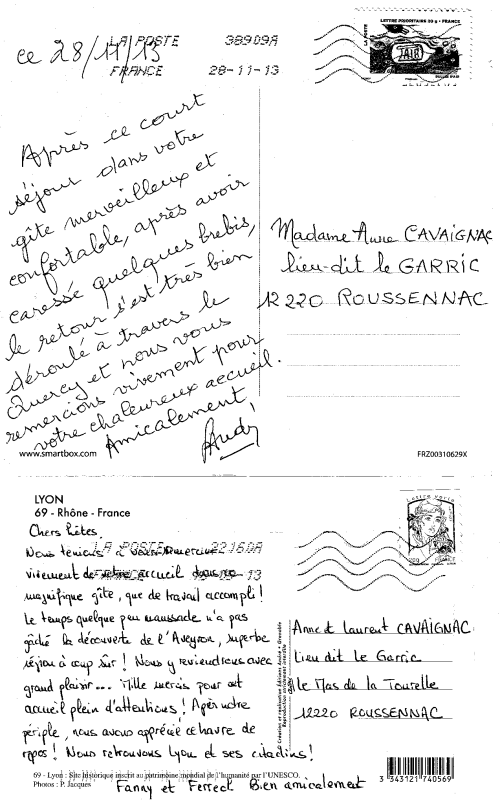 ce 28/11/13
LA POSTE 38909A
FRANCE 28-11-13
LETTRE PRIORITAIRE 20 g - FRANCE
LA POSTE
Après ce court
séjour dans votre
gîte merveilleux et
confortable, après avoir
caressé quelques brebis,
le retour s'est très bien
déroulé à travers le
Quercy et nous vous
remercions vivement pour
votre chaleureux accueil.
Amicalement,
Madame Anne CAVAIGNAC
lieu-dit le GARRIC
12220 ROUSSENNAC
www.smartbox.com
FRZ00310629X
LYON
69 - Rhône - France
Chers hôtes,
LA POSTE 22160A
FRANCE 13
Nous tenions à vous remercier
vivement de votre accueil dans ce
magnifique gîte, que de travail accompli !
Le temps quelque peu maussade n'a pas
gâché la découverte de l'Aveyron, superbe
séjour à coup sûr ! Nous y reviendrons avec
grand plaisir... Mille mercis pour cet
accueil plein d'attentions ! Après notre
périple, nous avons apprécié ce havre de
repos ! Nous retrouvons Lyon et ses citadins !
Fanny et Bien amicalement
Lettre verte
Anne et Laurent CAVAIGNAC
Lieu dit Le Garric
Le Mas de la Tourelle
12220 ROUSSENNAC
Reproduction interdite
69 - Lyon : Site historique inscrit au patrimoine mondial de l'humanité par l'UNESCO.
Photos : P. Jacques
3 343121 740569